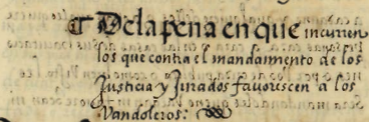 ¶ De la pena en que incurren
los que contra el mandamiento de los
Justicia y Jurados favorescen a los
Vandoleros: